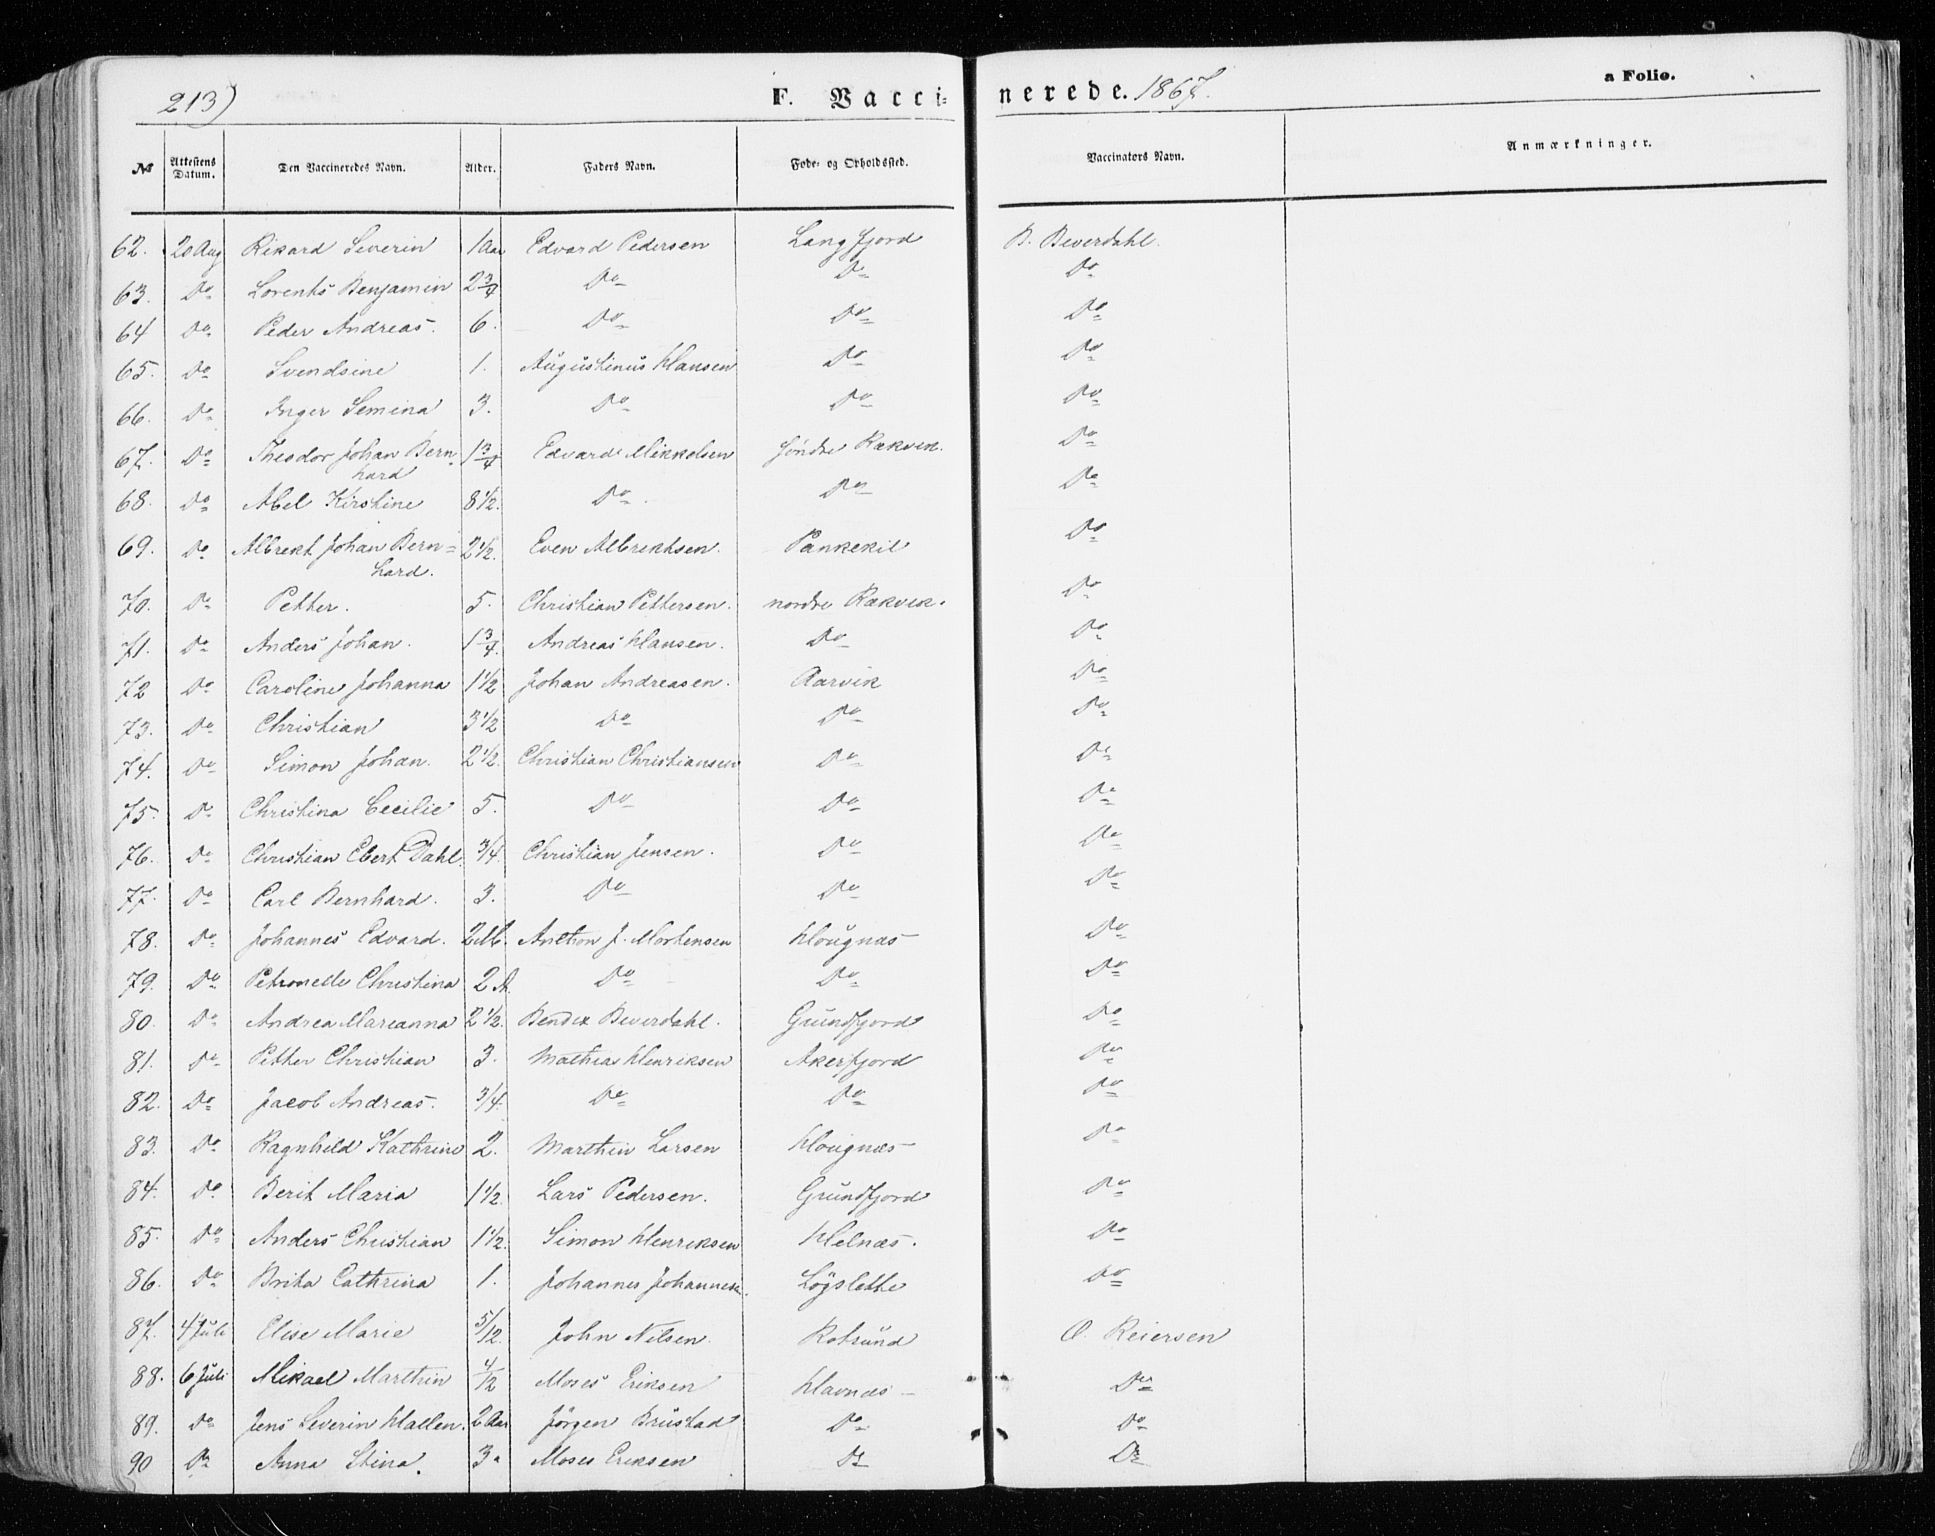 213) F. Vacci- nerede. 1867. a Folio.
№ Attestens Datum. Den Vaccineredes Navn. Alder. Faders Navn. Føde- og Opholdssted. Vaccinators Navn. Anmærkninger.
62. 20 Aug Rikard Severin 1 Aar Edvard Pedersen Langfjord B. Beverdahl.
63. Do Lorents Benjamin 2 3/4 Do Do Do
64 Do Peder Andreas. 6. Do Do Do
65. Do Svendsine 1. Augustinus Hansen Do Do
66. Do Inger Semina 3. Do Do Do
67. Do Theodor Johan Bern- 1 3/4 Edvard Mikkelsen Søndre Rækvik. Do
hard
68. Do Abel Kirstine 8 1/2. Do Do Do
69. Do Albrekt Johan Bern= 2 1/2. Even Albrektsen. Pankekil Do
hard.
70. Do Petter. 5. Christian Pettersen. nordre Rækvik. Do
71. Do Anders Johan. 1 3/4. Andreas Hansen. Do Do
72 Do Caroline Johanna 1 1/2 Johan Andreasen. Aarvik Do
73. Do Christian 3 1/2 Do Do Do
74. Do Simon Johan. 2 1/2. Christian Christiansen Do Do
75. Do Christina Cecilie 5. Do Do Do
76. Do Christian Ebert Dahl. 3/4. Christian Jensen. Do Do
77. Do Carl Bernhard. 3. Do Do Do
78. Do Johannes Edvard. 2 M. Anthon J. Mortensen Hougnæs Do
79. Do Petronelle Christina 2 A. Do Do Do
80. Do Andrea Mareanna 2 1/2. Bendix Beverdahl. Grundfjord Do
81. Do Petter Christian 3. Mathias Henriksen Akerfjord Do
82. Do Jacob Andreas. 3/4. Do Do Do
83. Do Ragnhild Kathrine 2. Marthin Larsen Hougnæs Do
84. Do Berit Maria 1 1/2. Lars Pedersen. Grundfjord Do
85. Do Anders Christian 1 1/2. Simon Henriksen Helnæs. Do
86. Do Brita Cathrina 1. Johannes Johannesen. Løgslette Do
87. 4 Juli Elise Marie 5/12. John Nilsen. Rotsund O. Reiersen
88. 6 Juli Mikael Marthin 4/12 Moses Eriksen Havnæs Do
89. Do Jens Severin Hallen. 2 Aar Jørgen Brustad Do Do
90 Do Anna Stina. 3 " Moses Eriksen Do Do